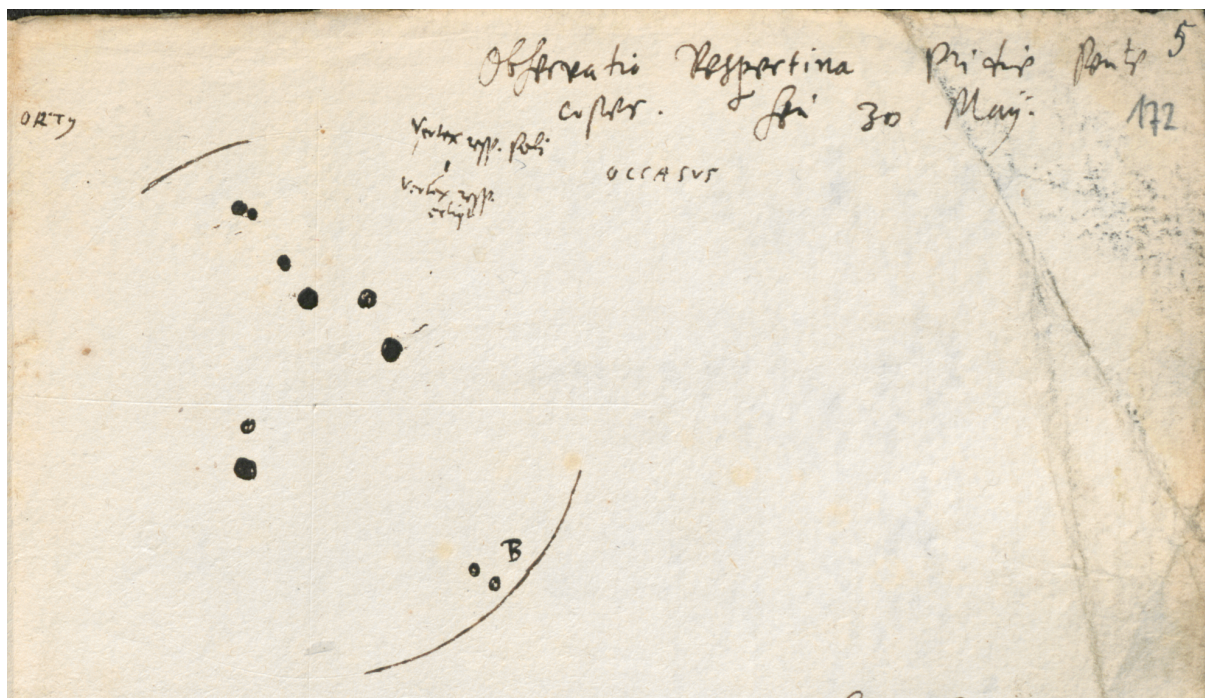 Observatio Vespertina Pridie Pente 5
costes. seu 30 Maÿ. 172
ORTY
Vertex resp. poli
Vertex resp.
eclipt
OCCASUS
B